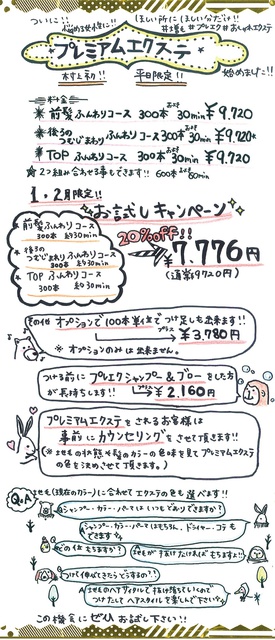 ついに!!
悩める女性に!!
ほしい所にほしい分だけ!!
#増毛 #プレエク #おしゃれエクステ
プレミアムエクステ
村上ネリ!!
平日限定!!
始めました!!
料金
* 前髪ふんわりコース 300本 およそ30min ¥9.720
* 後ろのつむじまわりふんわりコース 300本 およそ30min ¥9.720*
* TOP ふんわりコース 300本 およそ30min ¥9.720
☆ 2つ組み合せる事もできます!! 600本 およそ60min
1,2月限定!!
お試しキャンペーン
前髪ふんわりコース
300本 約30min
後ろのつむじまわりふんわりコース
300本 約30min
TOP ふんわりコース
300本 約30min
20%off!!
¥7.776円
(通常¥9720円)
その他 オプションで100本単位でつけ足しも出来ます!!
プラス ¥3.780円
※ オプションのみは出来ません。
つける前にプレエクシャンプー&ブローをした方
が長持ちします!! プラス ¥2.160円
プレミアムエクステをされるお客様は
事前にカウンセリングをさせて頂きます!!
(※地毛の状態や髪のカラーの色味を見てプレミアムエクステ
の色を決めさせて頂きます。)
Q&A
地毛(現在のカラー)に合わせてエクステの色も選べます!!
シャンプー・カラー・パーマはいつもどおりできますか?
シャンプー・カラー・パーマはもちろん、ドライヤー・コテも
できますよ
どの位もちますか?
地毛が抜けなければもちますよ!!
つけて伸びてきたらどうするの?
地毛のヘアサイクルで抜け落ちていくので
つけたしてヘアスタイルを楽しんで下さい
この機会にぜひお試し下さい!!